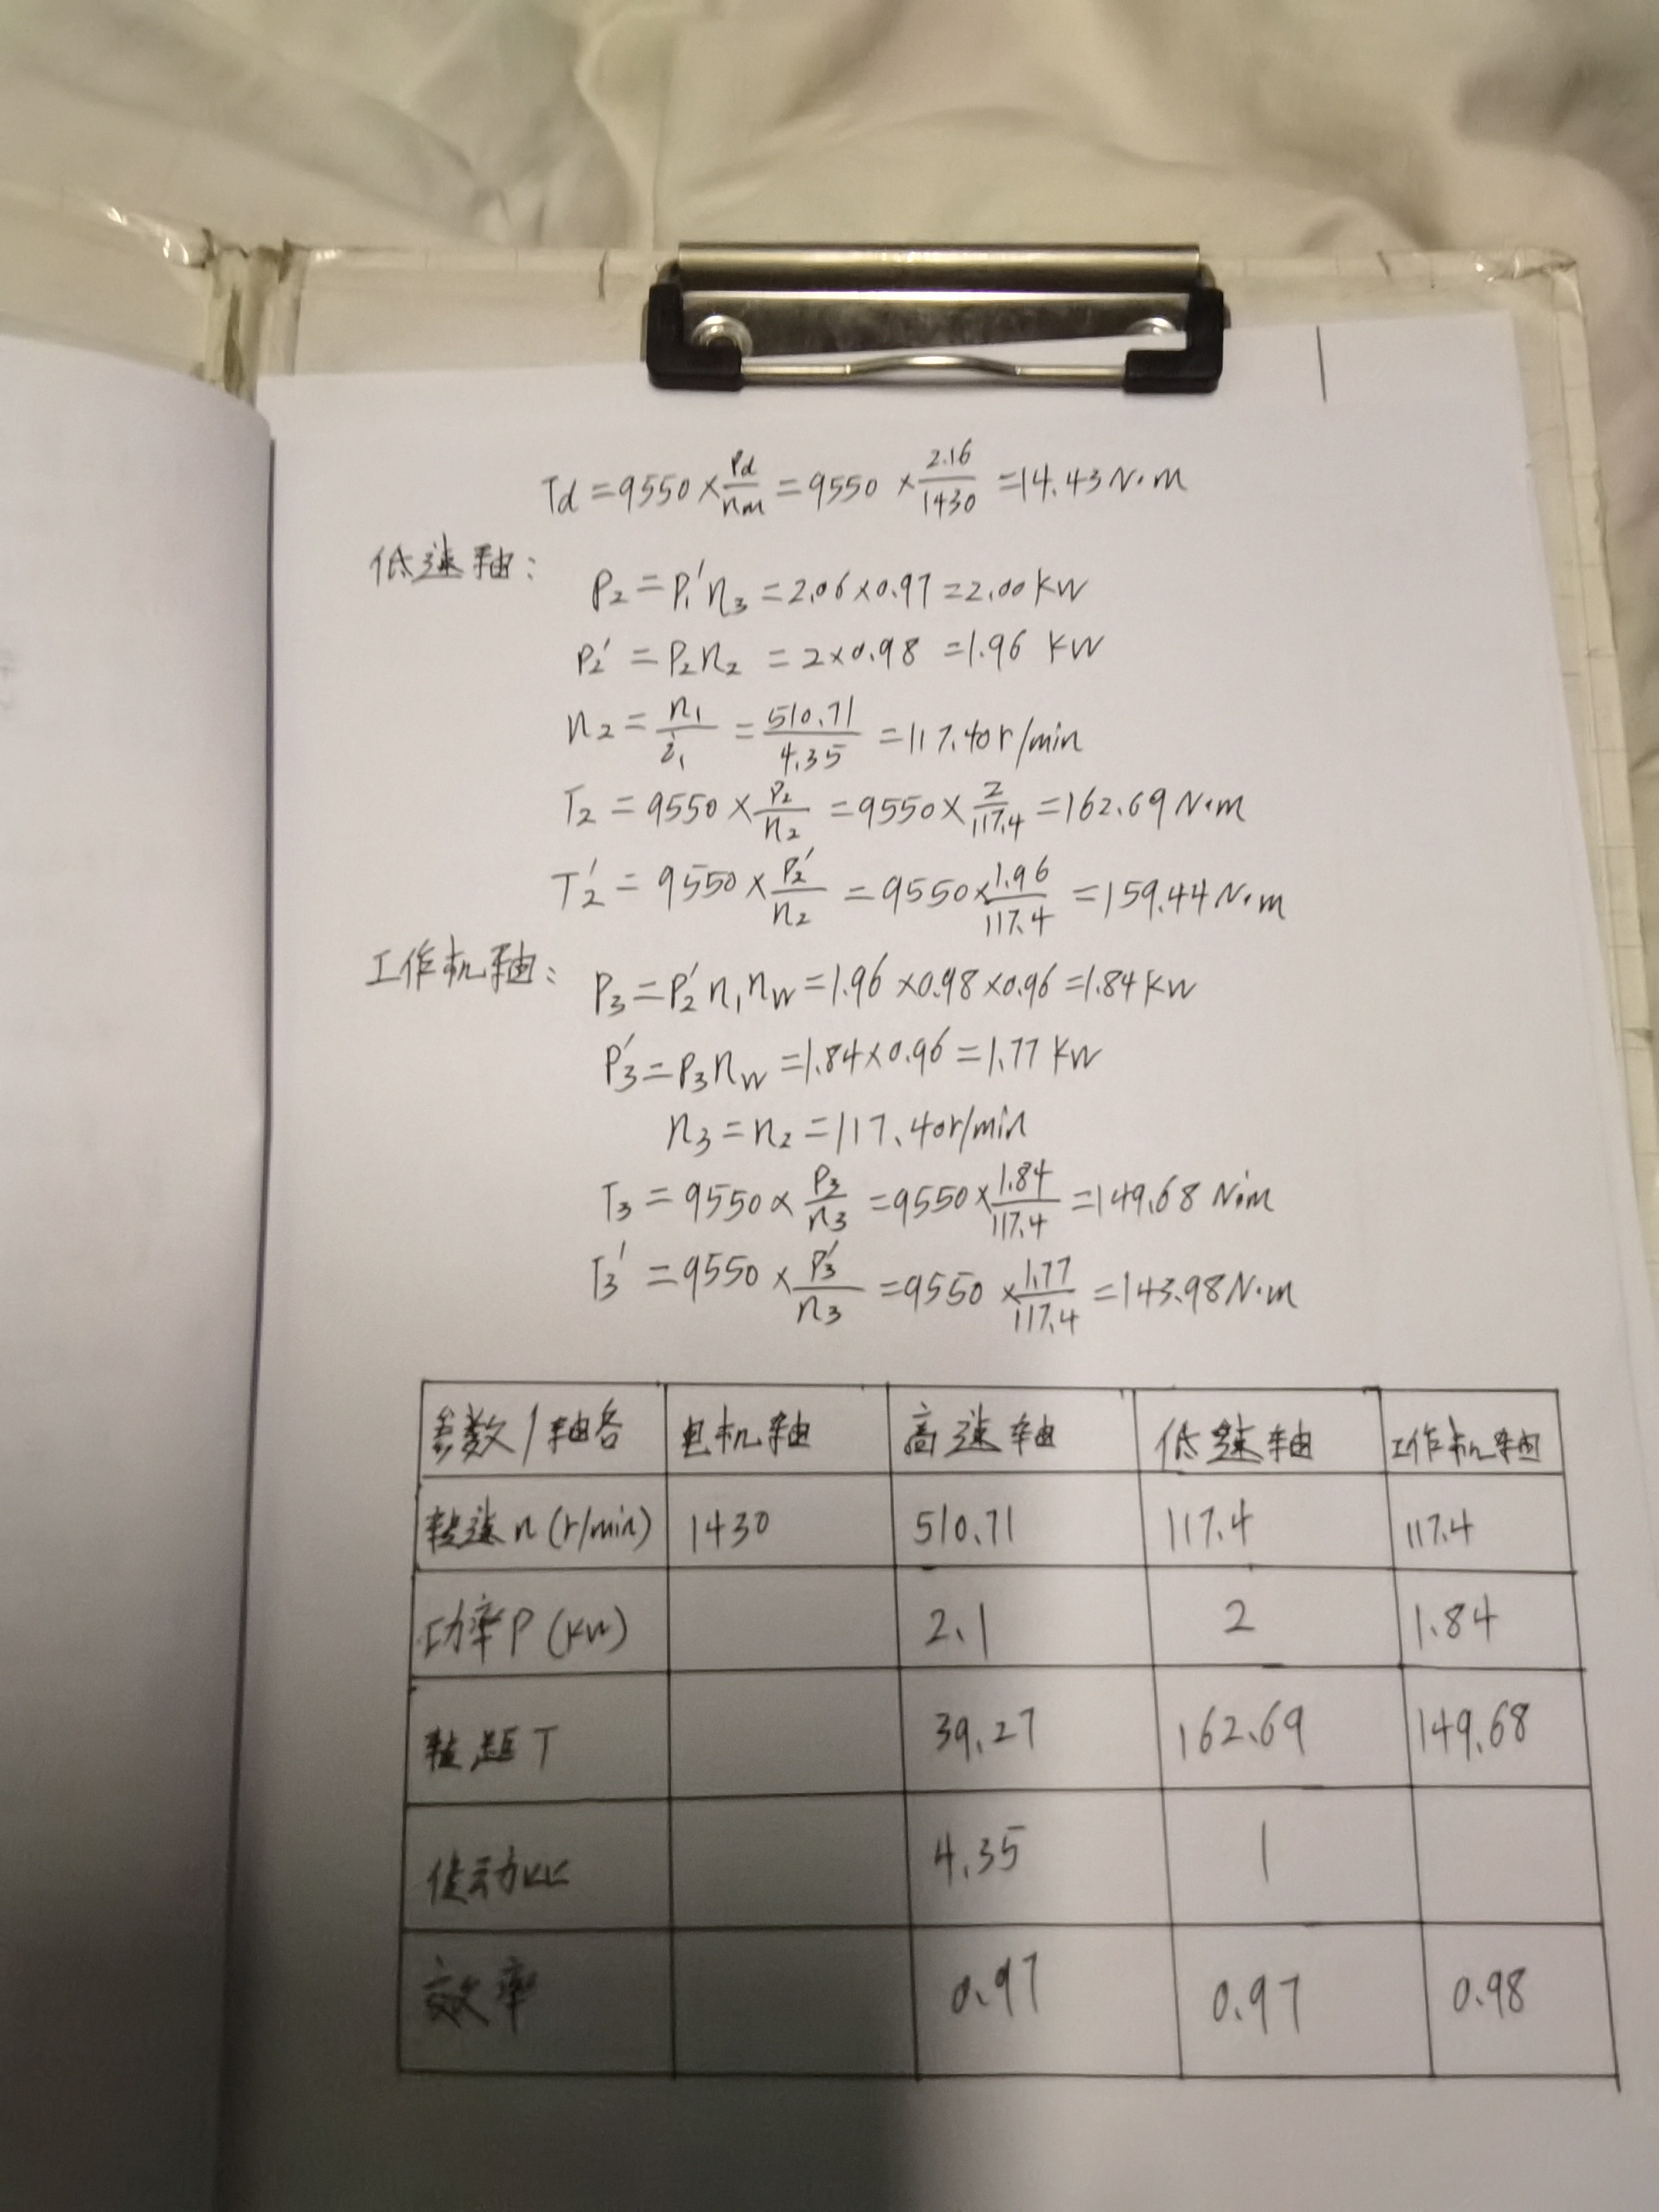 Td = 9550 × Pd/nm = 9550 × 2.16/1430 = 14.43 N·m
低速轴：
P2 = P1'η3 = 2.06×0.97 = 2.00 KW
P2' = P2η2 = 2×0.98 = 1.96 KW
n2 = n1/i1 = 510.71/4.35 = 117.40r/min
T2 = 9550 × P2/n2 = 9550 × 2/117.4 = 162.69 N·m
T2' = 9550 × P2'/n2 = 9550 × 1.96/117.4 = 159.44 N·m
工作机轴：
P3 = P2'η1ηw = 1.96 ×0.98 ×0.96 = 1.84 KW
P3' = P3ηw = 1.84×0.96 = 1.77 KW
n3 = n2 = 117.40r/min
T3 = 9550 × P3/n3 = 9550 × 1.84/117.4 = 149.68 N·m
T3' = 9550 × P3'/n3 = 9550 × 1.77/117.4 = 143.98 N·m
参数/轴名 电机轴 高速轴 低速轴 工作机轴
转速n (r/min) 1430 510.71 117.4 117.4
功率P (KW) 2.1 2 1.84
转距T 39.27 162.69 149.68
传动比 4.35 1
效率 0.97 0.97 0.98